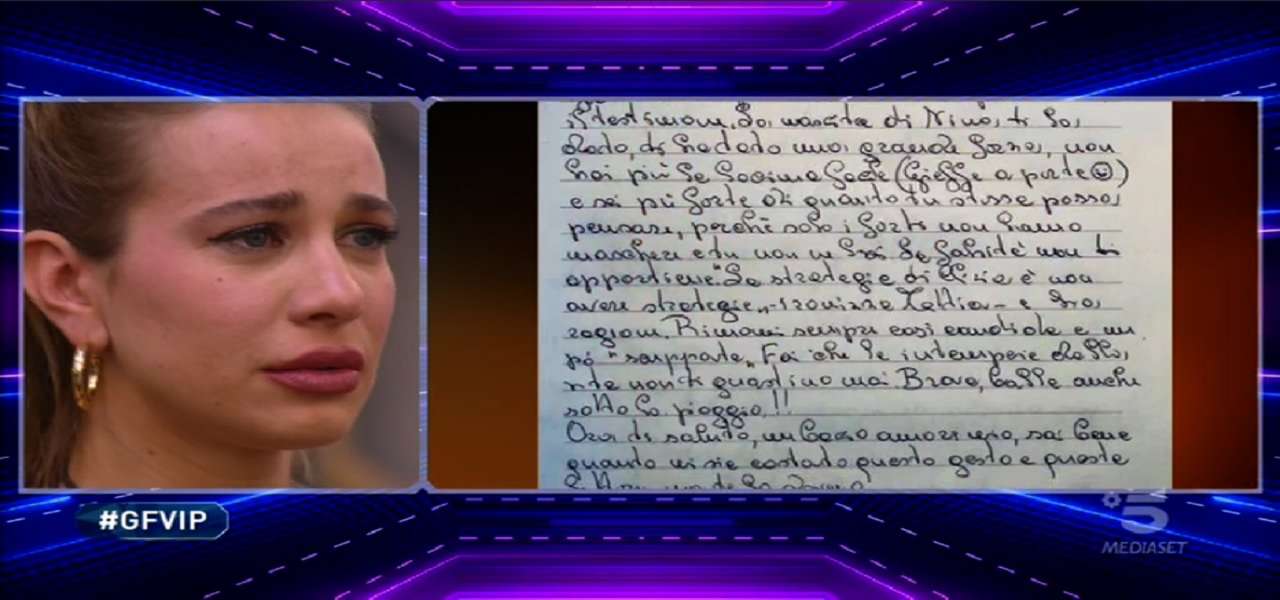 la nascita di Nino, ti ha
dato, ti ha dato una grande forza, non
hai più la lacrima facile (Gieffe a parte☺)
e sei più forte di quanto tu stessa possa
pensare, perché solo i forti non hanno
maschere e tu non ne hai la falsità non ti
appartiene. "La strategia di è non
avere strategie„ - Zattia - e ha
ragione. Rimani sempre così candida e un
pò "sempre Fai che le intemperie della
vita non ti guastino mai Brava, balla anche
sotto la pioggia!!
Ora ti saluto, un bacio amore mio, sai bene
quanto mi sia costato questo gesto e queste
#GFVIP
5
MEDIASET